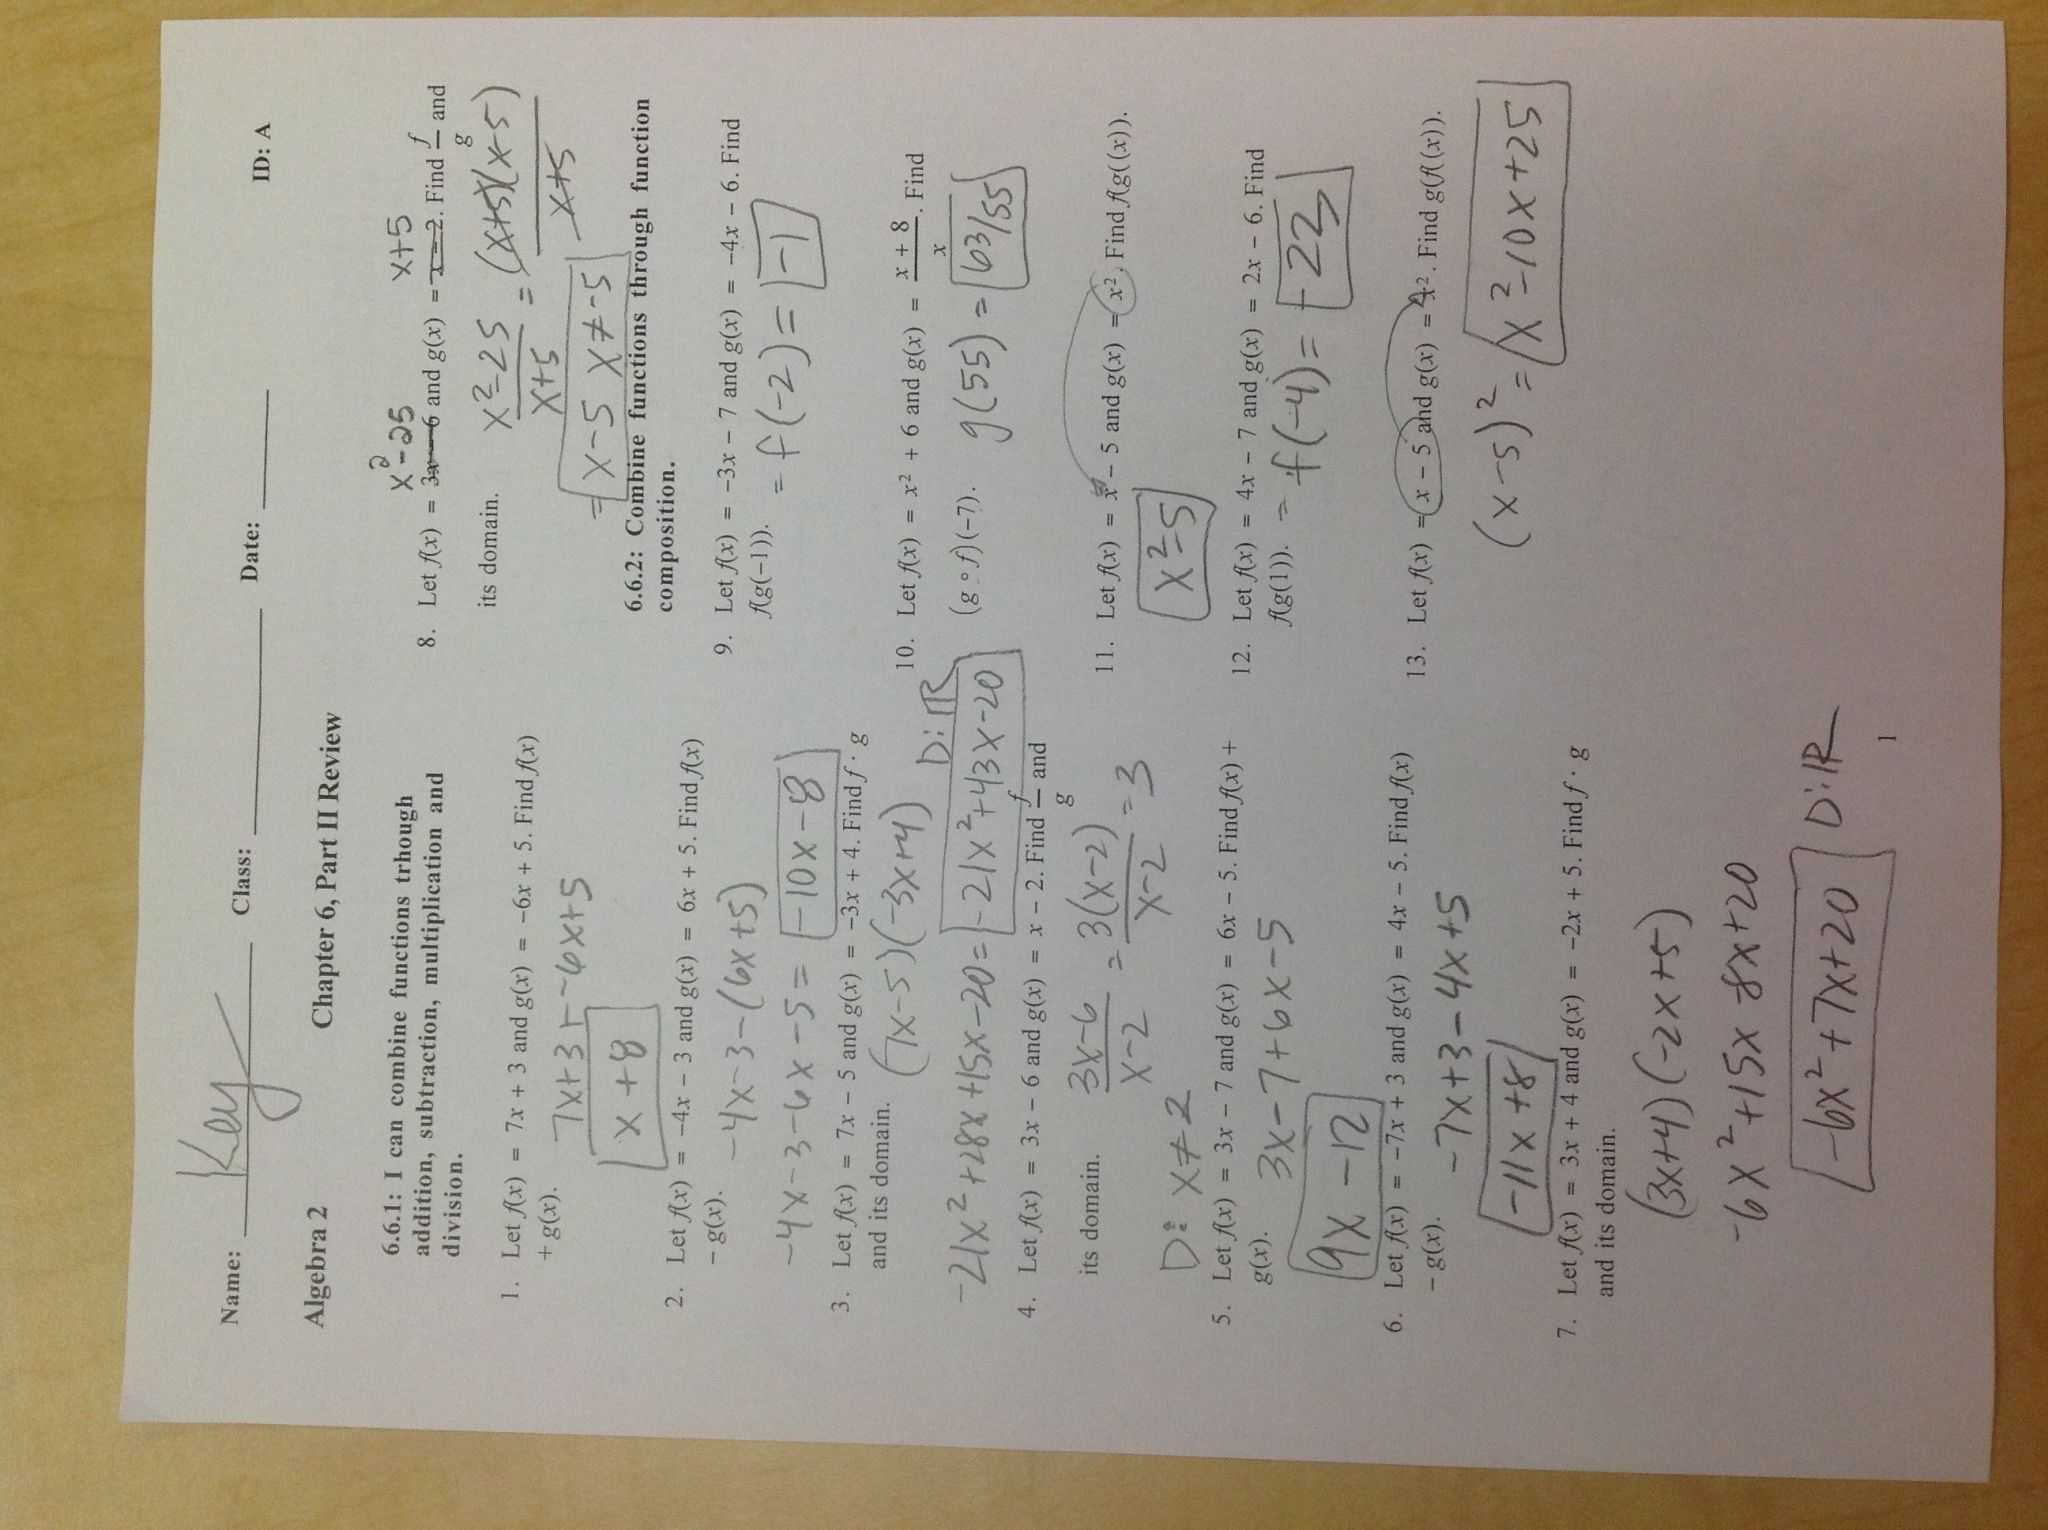 Name: Key Class: Date: ID: A
Algebra 2 Chapter 6, Part II Review
6.6.1: I can combine functions trhough
addition, subtraction, multiplication and
division.
1. Let f(x) = 7x + 3 and g(x) = -6x + 5. Find f(x)
+ g(x).
7x+3 + -6x+5
x+8
2. Let f(x) = -4x - 3 and g(x) = 6x + 5. Find f(x)
- g(x).
-4x-3-(6x+5)
-4x-3-6x-5= -10x-8
3. Let f(x) = 7x - 5 and g(x) = -3x + 4. Find f · g
and its domain.
(7x-5)(-3x+4) D: ℝ
-21x²+28x+15x-20= -21x²+43x-20
4. Let f(x) = 3x - 6 and g(x) = x - 2. Find f/g and
its domain.
3x-6/x-2 = 3(x-2)/x-2 = 3
D: x≠2
5. Let f(x) = 3x - 7 and g(x) = 6x - 5. Find f(x) +
g(x).
3x-7+6x-5
9x-12
6. Let f(x) = -7x + 3 and g(x) = 4x - 5. Find f(x)
- g(x).
-7x+3-4x+5
-11x+8
7. Let f(x) = 3x + 4 and g(x) = -2x + 5. Find f · g
and its domain.
(3x+4)(-2x+5)
-6x²+15x-8x+20
-6x²+7x+20 D: ℝ
x²-25 x+5
8. Let f(x) = 3x - 6 and g(x) = x - 2. Find f/g and
its domain.
x²-25/x+5 = (x+5)(x-5)/x+5
= x-5 x≠-5
6.6.2: Combine functions through function
composition.
9. Let f(x) = -3x - 7 and g(x) = -4x - 6. Find
f(g(-1)).
= f(-2) = -1
10. Let f(x) = x² + 6 and g(x) = x + 8/x. Find
(g ∘ f)(-7).
g(55) = 63/55
11. Let f(x) = x - 5 and g(x) = x². Find f(g((x)).
x²-5
12. Let f(x) = 4x - 7 and g(x) = 2x - 6. Find
f(g(1)).
= f(-4) = -23
13. Let f(x) = x - 5 and g(x) = x². Find g(f((x)).
(x-5)² = x²-10x+25
1